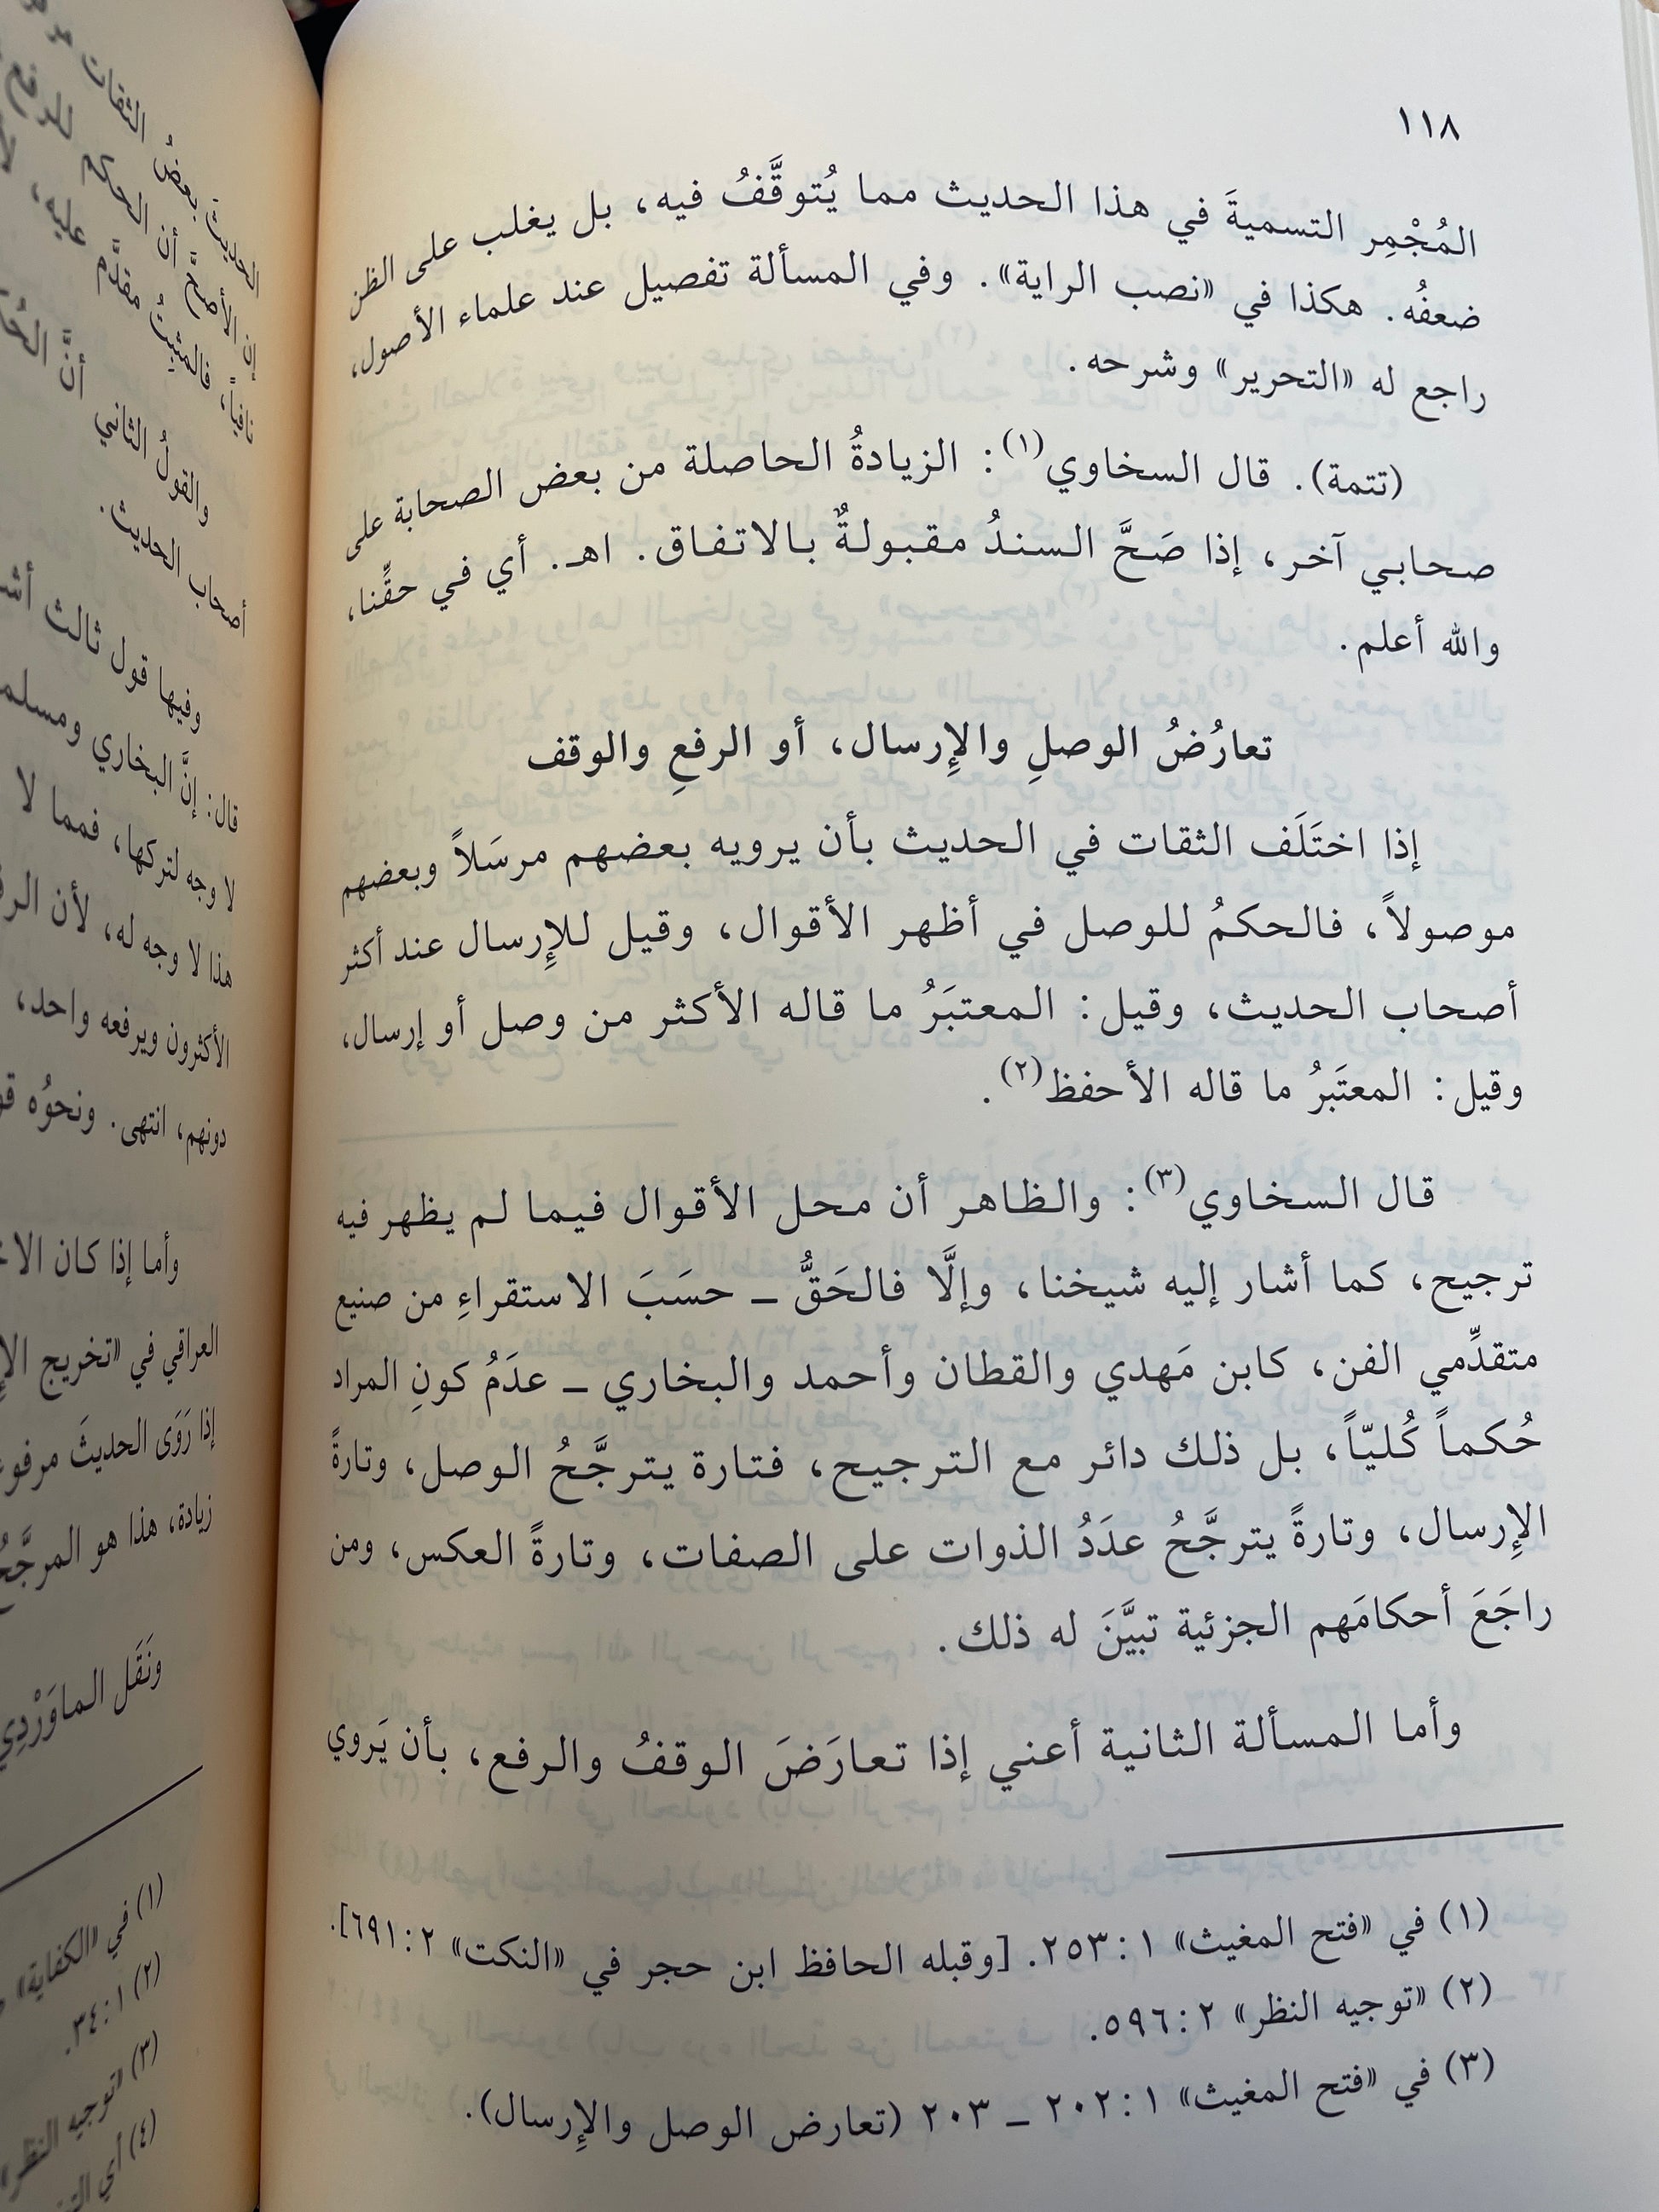 ١١٨
المُجْمِر التسميةَ في هذا الحديث مما يُتوقَّفُ فيه، بل يغلب على الظن
ضعفُه. هكذا في «نصب الراية». وفي المسألة تفصيل عند علماء الأصول،
راجع له «التحرير» وشرحه.
(تتمة). قال السخاوي(١): الزيادةُ الحاصلة من بعض الصحابة على
صحابي آخر، إذا صَحَّ السندُ مقبولةٌ بالاتفاق. اهـ. أي في حقِّنا،
والله أعلم.
تعارُضُ الوصلِ والإِرسال، أو الرفعِ والوقف
إذا اختَلَف الثقات في الحديث بأن يرويه بعضهم مرسَلاً وبعضهم
موصولاً، فالحكمُ للوصل في أظهر الأقوال، وقيل للإِرسال عند أكثر
أصحاب الحديث، وقيل: المعتبَرُ ما قاله الأكثر من وصل أو إرسال،
وقيل: المعتَبرُ ما قاله الأحفظ(٢).
قال السخاوي(٣): والظاهر أن محل الأقوال فيما لم يظهر فيه
ترجيح، كما أشار إليه شيخنا، وإلَّا فالحَقُّ ـ حسَبَ الاستقراءِ من صنيع
متقدِّمي الفن، كابن مَهدي والقطان وأحمد والبخاري ـ عدَمُ كونِ المراد
حُكماً كُليّاً، بل ذلك دائر مع الترجيح، فتارة يترجَّحُ الوصل، وتارةً
الإِرسال، وتارةً يترجَّحُ عدَدُ الذوات على الصفات، وتارةً العكس، ومن
راجَعَ أحكامَهم الجزئية تبيَّنَ له ذلك.
وأما المسألة الثانية أعني إذا تعارَضَ الوقفُ والرفع، بأن يَروي
(١) في «فتح المغيث» ١: ٢٥٣. [وقبله الحافظ ابن حجر في «النكت» ٢: ٦٩١].
(٢) «توجيه النظر» ٢: ٥٩٦.
(٣) في «فتح المغيث» ١: ٢٠٢ ـ ٢٠٣ (تعارض الوصل والإِرسال).
الحديث بعضُ الثقات
إن الأصحَّ أن الحكم للرفع
نافياً، فالمثبِتُ مقدَّم عليه،
والقولُ الثاني أنَّ
أصحاب الحديث.
وفيها قول ثالث
قال: إنَّ البخاري ومسلم
لا وجه لتركها، فمما لا
هذا لا وجه له، لأن
الأكثرون ويرفعه واحد،
دونهم، انتهى. ونحوُه
وأما إذا كان
العراقي في «تخريج
إذا رَوَى الحديثَ
زيادة، هذا هو
ونَقَل الماوَرْدِي
(١) في «الكفاية»
(٢) ١: ٣٤.
(٣) «توجيه النظر»
(٤) أي